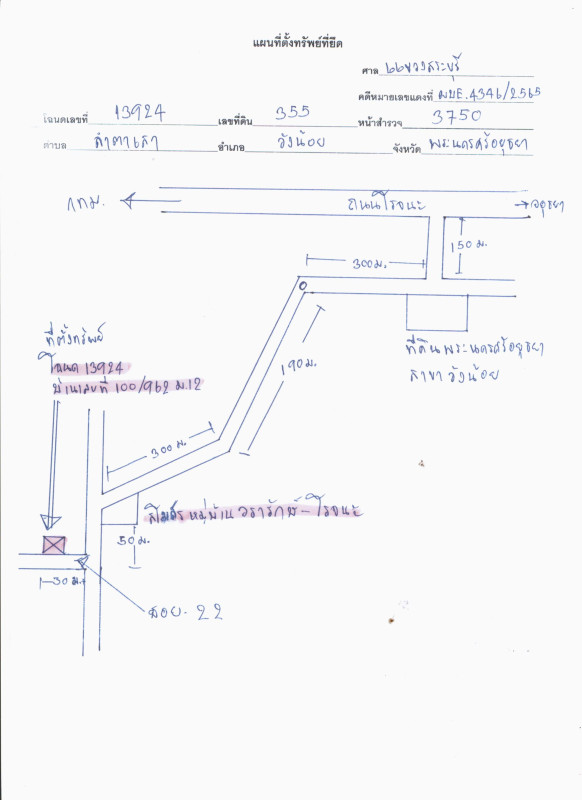 แผนที่ตั้งทรัพย์ที่ยึด
ศาล แขวงสระบุรี
คดีหมายเลขแดงที่ ผบE.4346/2565
โฉนดเลขที่ 13924 เลขที่ดิน 355 หน้าสำรวจ 3750
ตำบล ลำตาเสา อำเภอ วังน้อย จังหวัด พระนครศรีอยุธยา
กทม. ถนนโรจนะ อยุธยา
150 ม.
300 ม.
ที่ตั้งทรัพย์
โฉนด 13924
บ้านเลขที่ 100/962 ม.12
190 ม.
ที่ดินพระนครศรีอยุธยา
สาขา วังน้อย
300 ม.
สโมสรหมู่บ้าน วรารักษ์-โรจนะ
50 ม.
30 ม.
ซอย. 22